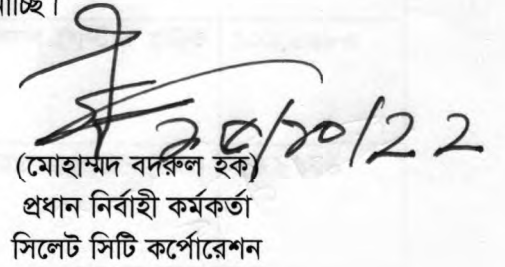 (মোহাম্মদ বদরুল হক)
প্রধান নির্বাহী কর্মকর্তা
সিলেট সিটি কর্পোরেশন